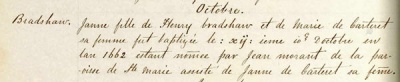 Octobre.
Bradshaw. Janne fille de Henry bradshaw et de Marie de Carteret
sa femme fut baptizée le : xij : ieme io^r Doctobre en
lan 1662 estant nômee par Jean morant de la par-
oisse de S^te Marie assisté de Janne de Carteret sa feme.